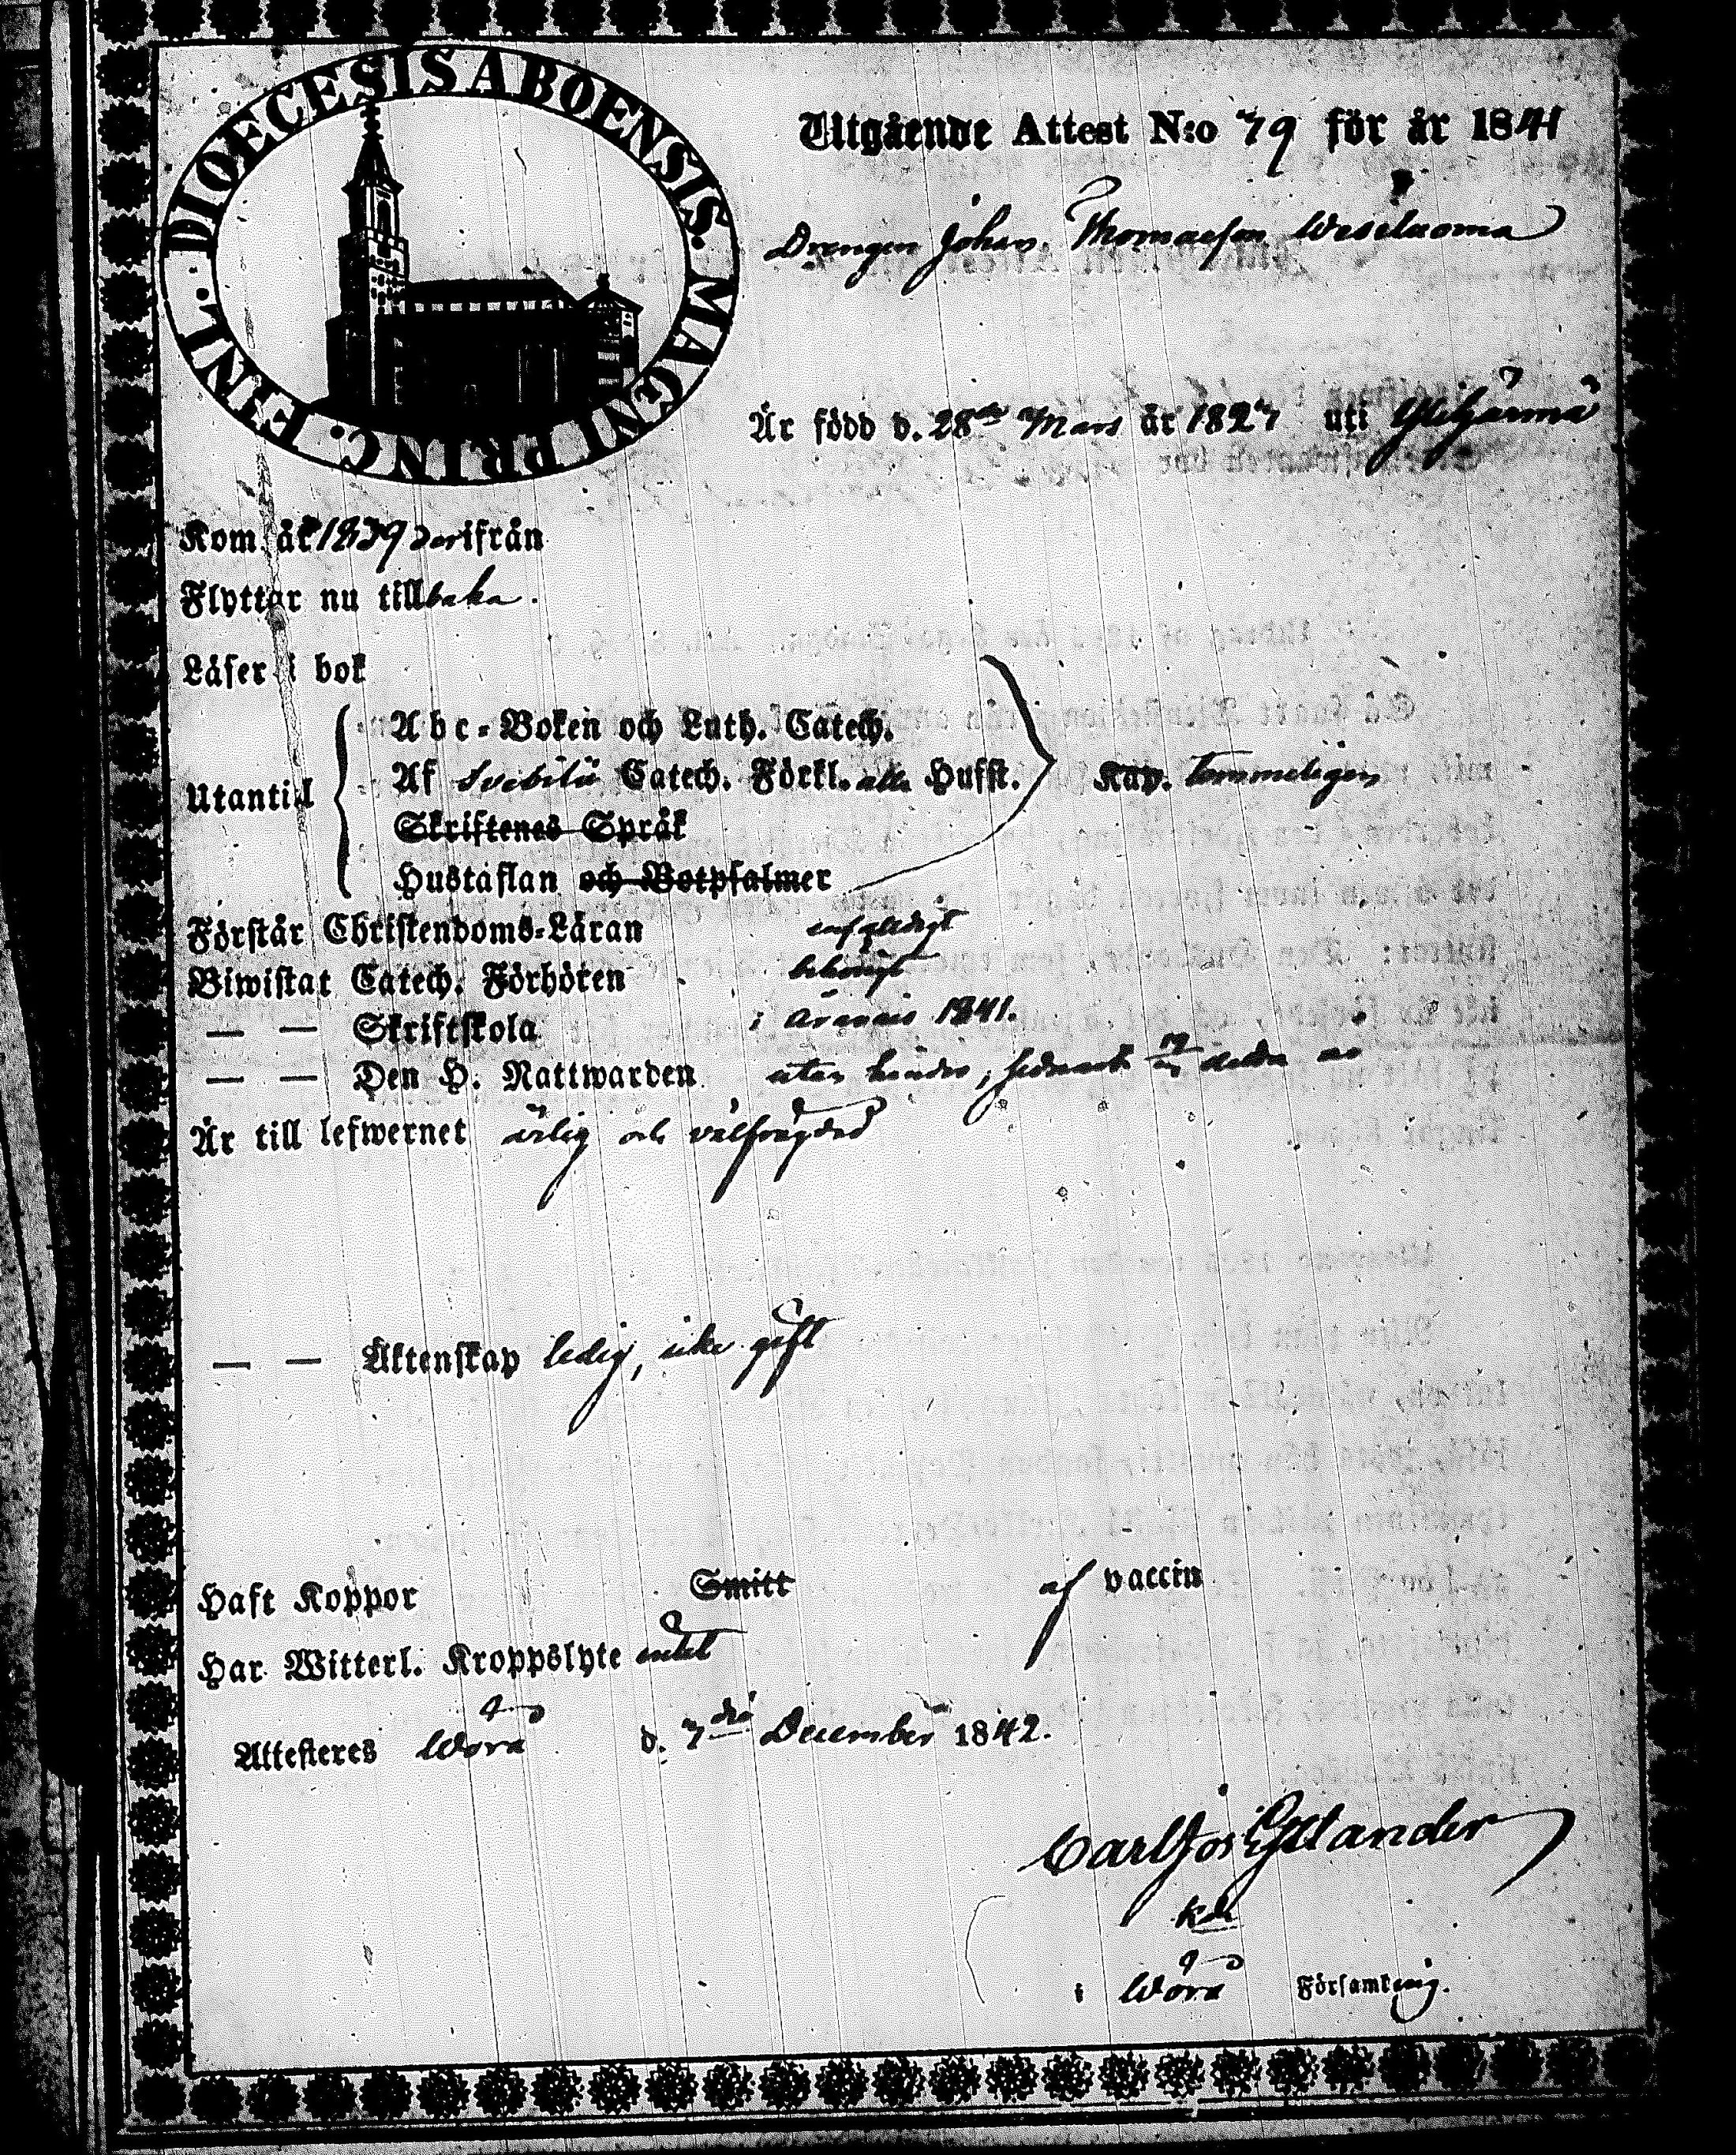 DIOECESIS ABOENSIS. MAGNI PRINC. FINL.
Utgående Attest N:o 79 för år 1841
Drengen Johan Thomasson Wesiluoma
Är född d. 28de Mars år 1827 uti Ylihärmä
Kom år 1839 derifrån
Flyttar nu tillbaka.
Läser i bok
Utantill
Abc-Boken och Luth. Catech.
Af Svebilii Catech. Förkl. alla Hufst. Kap. temmeligen
Skriftenes Språk
Hustaflan och Botpsalmer
Förstår Christendoms-Läran enfaldigt
Biwistat Catech. Förhören behörigt
— — Skriftskola i Oravais 1841.
— — Den H. Nattwarden utan hinder, sednast
Är till lefwernet ärlig och välfrägdad
— — Äktenskap ledig, icke gift
Haft Koppor Smitt af vaccin
Har Witterl. Kroppslyte intet
Attesteres Wörå d. 7de December 1842.
Carl Jos
i Wörå Församling.